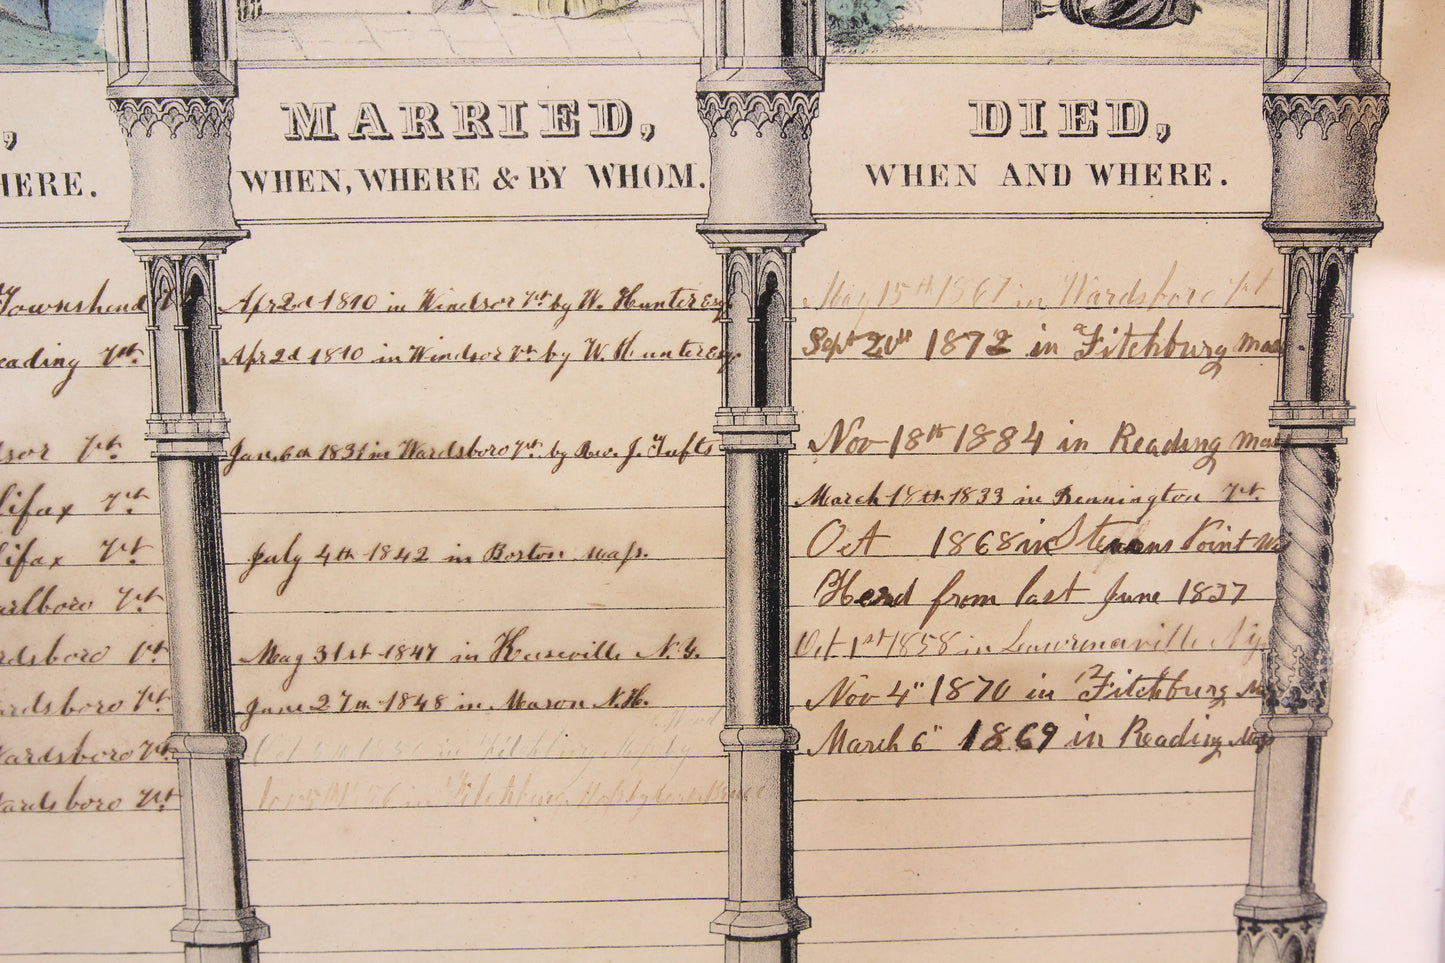 , MARRIED, DIED,
HERE. WHEN, WHERE & BY WHOM. WHEN AND WHERE.
Townshend Vt. Apr 2d 1810 in Windsor Vt by W. Hunter Esq. May 15th 1867 in Wardsboro Vt
eading Vt. Apr 2d 1810 in Windsor Vt by W. Hunter Esq. Sept 20th 1872 in Fitchburg Mass
dsor Vt. Jan. 6th 1831 in Wardsboro Vt. by Rev. J. Tufts Nov 18th 1884 in Reading Mass
lifax Vt. March 18th 1833 in Bennington Vt.
lifax Vt. July 4th 1842 in Boston Mass. Oct 1868 in Stevens Point Wis
arlboro Vt. Herd from last June 1837
rdsboro Vt. May 31st 1847 in Keeseville N.Y. Oct 1st 1858 in Lawrenceville Ny.
ardsboro Vt. June 27th 1848 in Mason N.H. Nov 4" 1870 in Fitchburg Mass
Wardsboro Vt. in Fitchburg by March 6" 1869 in Reading Mass
Wardsboro Vt. in Fitchburg by